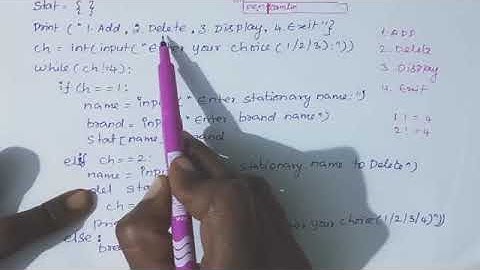 Stat = { }
Print ("1.Add, 2.Delete, 3.Display, 4.Exit")
ch = int(input("Enter your choice (1/2/3):"))
while(ch!=4):
if ch==1:
name = input("Enter stationary name:")
brand = input("Enter brand name")
Stat[name brand
elif ch==2:
name = in stationary name to Delete")
del sta
ch =
prin your choice(1/2/3/4)"))
else:
brea
1. ADD
2. Delete
3. Display
4. Exit
1!=4
2!=4